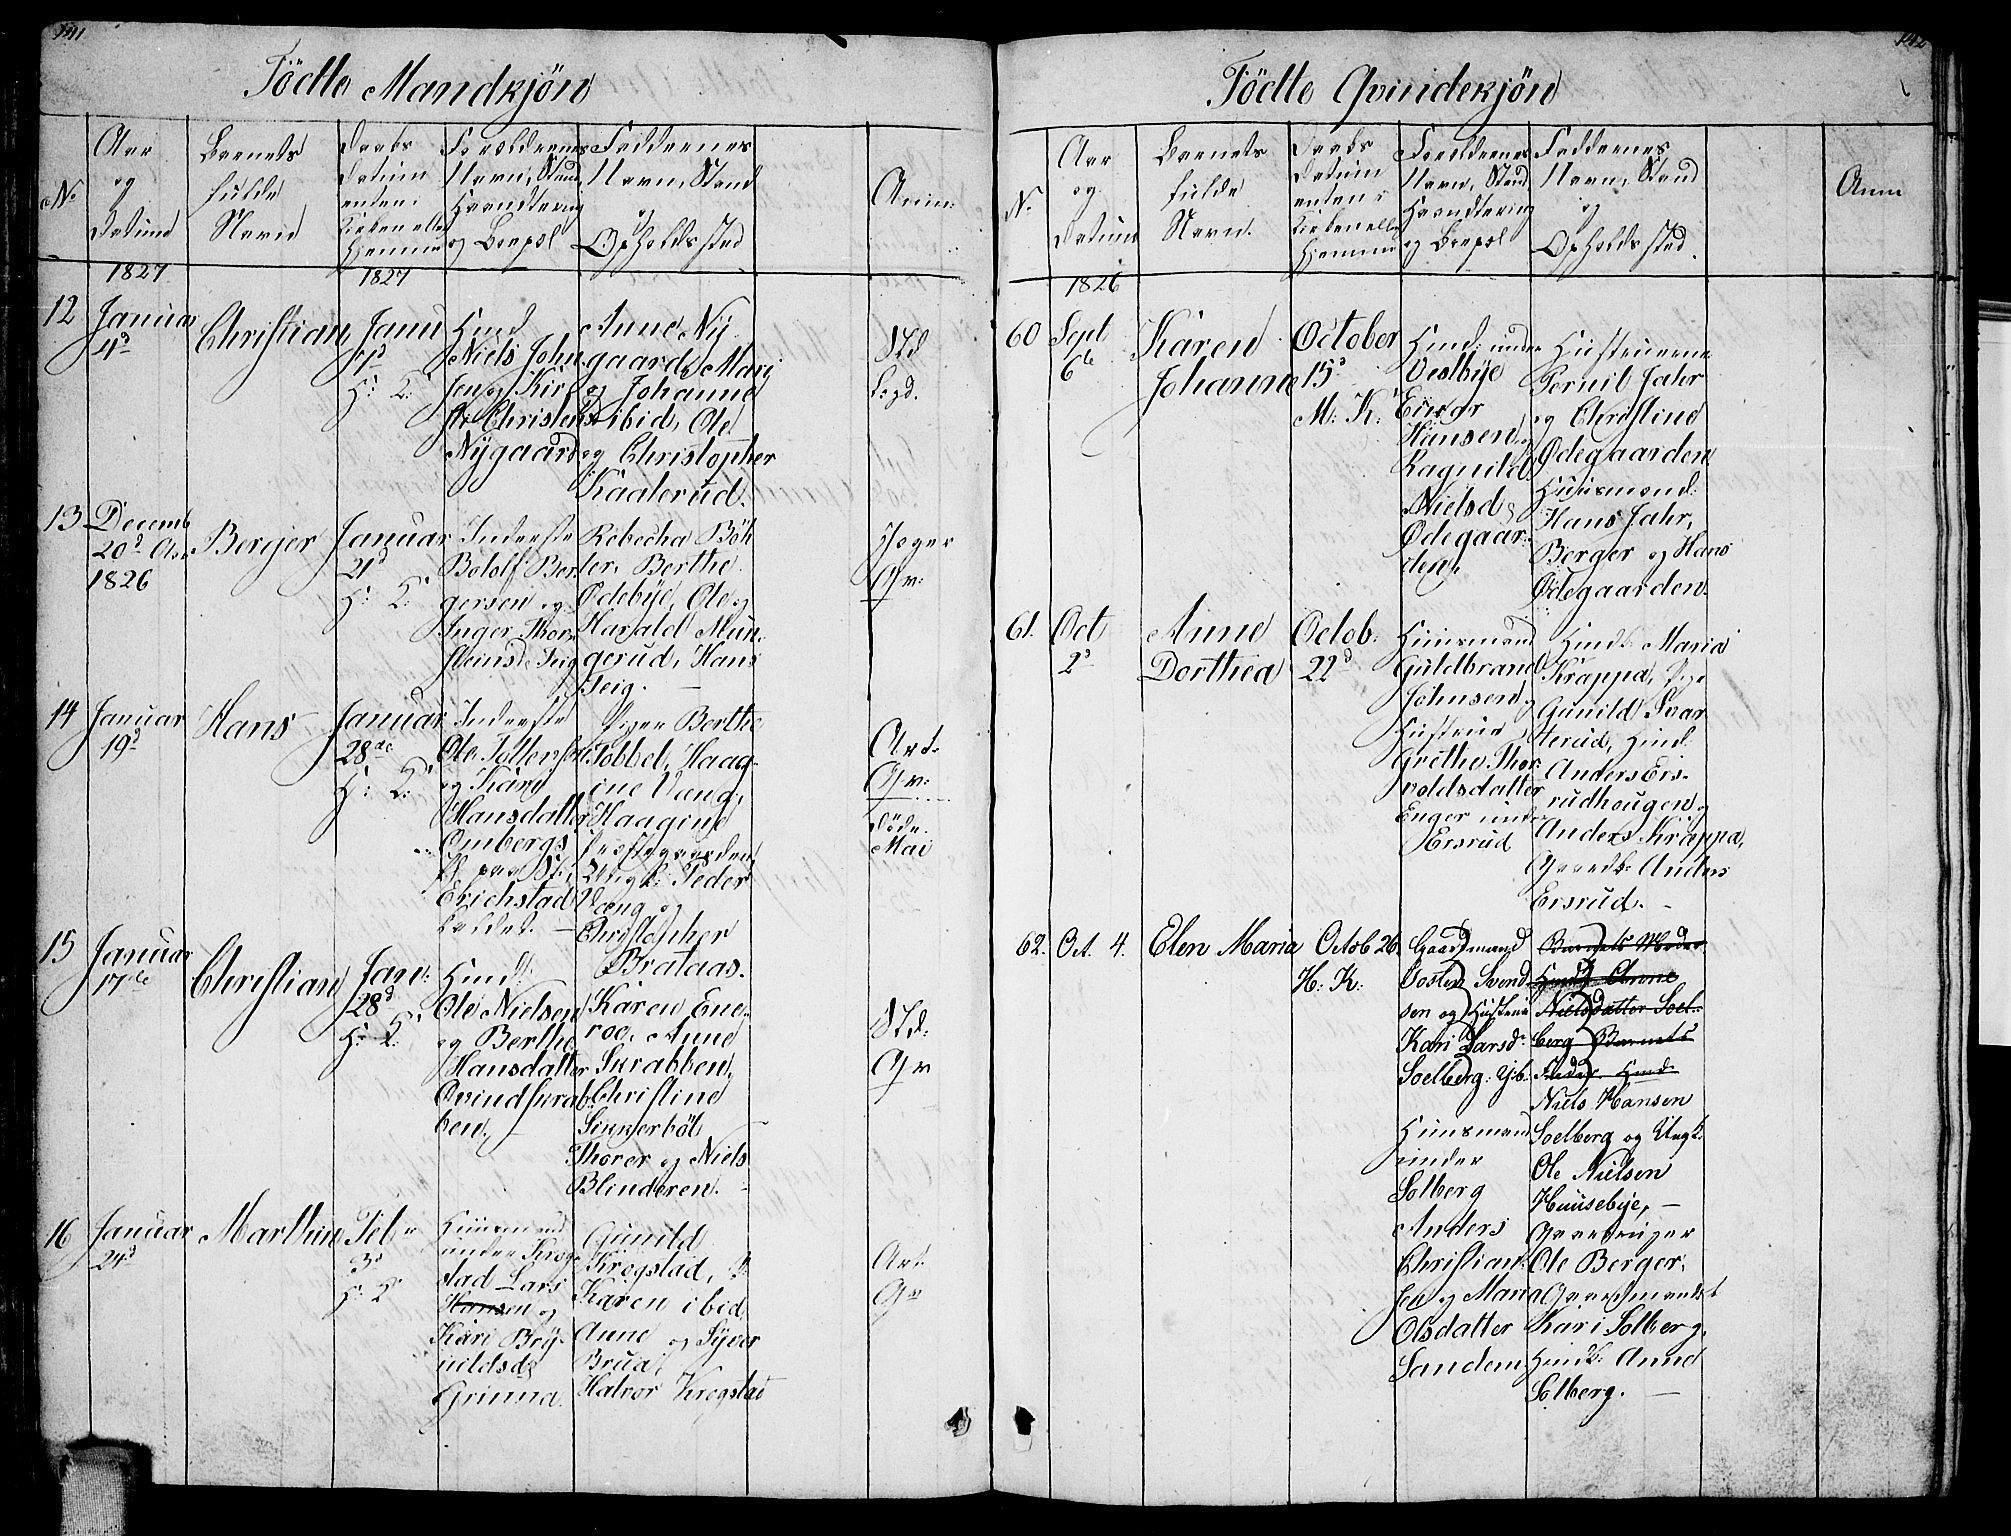 141
Födte Mandkjön
No
Aar
og
Datum
Barnets
fulde
Navn
Daabs
Datum
enten i
Kirken eller
Hjemme
Forældrenes
Navn, Stand
Haandtering
og Boepæl
Faddernes
Navn, Stand
og
Opholdssted
Anm:
1827
1827
12
Januar
4d
Christian
Janu
H: K:
Huusd
Niels John
sen og Kir
sti Christens
Nygaard
Anne Ny
gaard, Mari
og Johanne
ibid, Ole
og Christopher
Kaalerud.
Std
13
Decemb
20d Aar
1826
Berger
Januar
21d
H: K:
Inderste
Bololf Ber
gersen og
Inger Thor
steinsd. Teig
Rebecha Böh
ler, Berthe
Ödebye, Ole og
Harald Mun
gerud, Hans
Teig. —
Gr:
14
Januar
19d
Hans
Januar
28de
H: K:
Inderste
Ole Tollefsen
og Kari
Hansdatter
Ombergs
Erichstad
Piger Berthe
Tobbel, Haag
ine Vang,
Haagine
Præstegaarden,
Ungk: Peder
Vang og
Christopher
Brataas.
Art.
Gr:
Döde
Mai
15
Januar
17de
Christian
Jan:
28d
H: K:
Huusd:
Ole Nielsen
og Berthe
Hansdatter
Qvindskrab
ben.
Karen Ene
roe, Anne
Skrabben,
Christine
Sinnerböl
Thorer og Niels
Blinderen. —
Std:
Gr
16
Januar
24d
Marthin
Feb
3d
H: K
Huusmand
under Krog
stad Lars
Hansen og
Kari Brÿ
nildsd
Grinna.
Gunild
Krogstad, P:
Karen ibid
Anne og Syver
Brua,
Halvor Krogstad
Art
Gr
142
Födte Qvindekjön
N.
Aar
og
Datum
Barnets
fulde
Navn.
Daabs
Datum
enten i
Kirken eller
Hjemme
Forældrenes
Navn, Stand,
Haandtering
og Boepæl
Faddernes
Navn, Stand
og
Opholdssted.
Anm
1826
60
Sept
6te
Karen
Johanne
October
15d
M: K:
Huusd: under
Vestbye
Einar
Hansen og
Ragnild
Nielsd
Ødegaar
den.
Hustruerne
Pernil Jahr
og Christine
Ødegaarden
Huusmænd:
Hans Jahr,
Berger og Hans
Ødegaarden.
61.
Oct
2d
Anne
Dorthea
Octob:
22d
Huusmand
Guldbrand
Johnsen og
Hustrue
Grethe Thor
voldsdatter
Enger under
Ersrud
Huusk: Maria
Krappa, Pige
Gunild Svar
terud, Huusd:
Anders Ers
rudhougen og
Anders Krappa,
Gaardb: Anders
Ersrud. —
62.
Oct. 4.
Elen Maria
Octob 26
H: K:
Gaardmand
Gosten Svend
sen og Hustrue
Kari Larsd
Soelberg:
Huusmand
under
Solberg
Anders
Christian
sen og Maria
Olsdatter
Sanden
Barnets Moder
Huusk: Anne
Nielsdatter Soel
berg Barnets
Fader Huusd.
Niels Hansen
Soelberg og Ungk:
Ole Nielsen
Huusebye, —
Gaardbruger
Ole Berger,
Gaardmandsk
Kari Solberg,
Huusk: Anne
Solberg. —